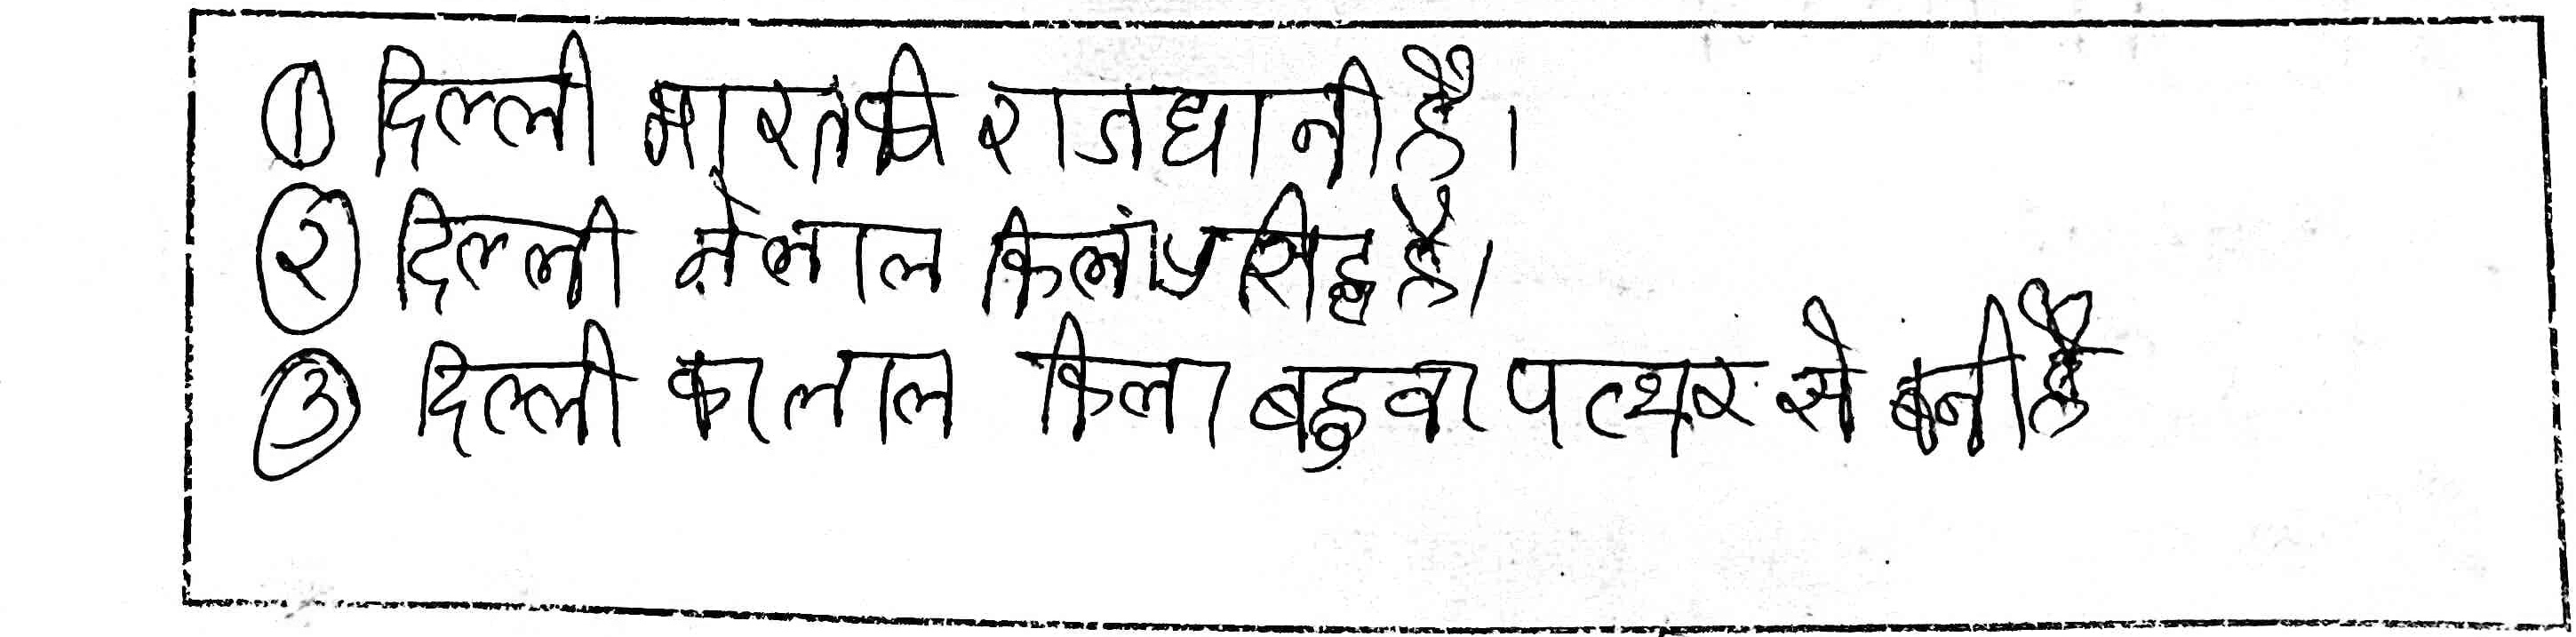 ① दिल्ली भारत की राजधानी है।
② दिल्ली में लाल किलां प्रसिद्ध है।
③ दिल्ली का लाल किला बहुवा पत्थर से बनी है